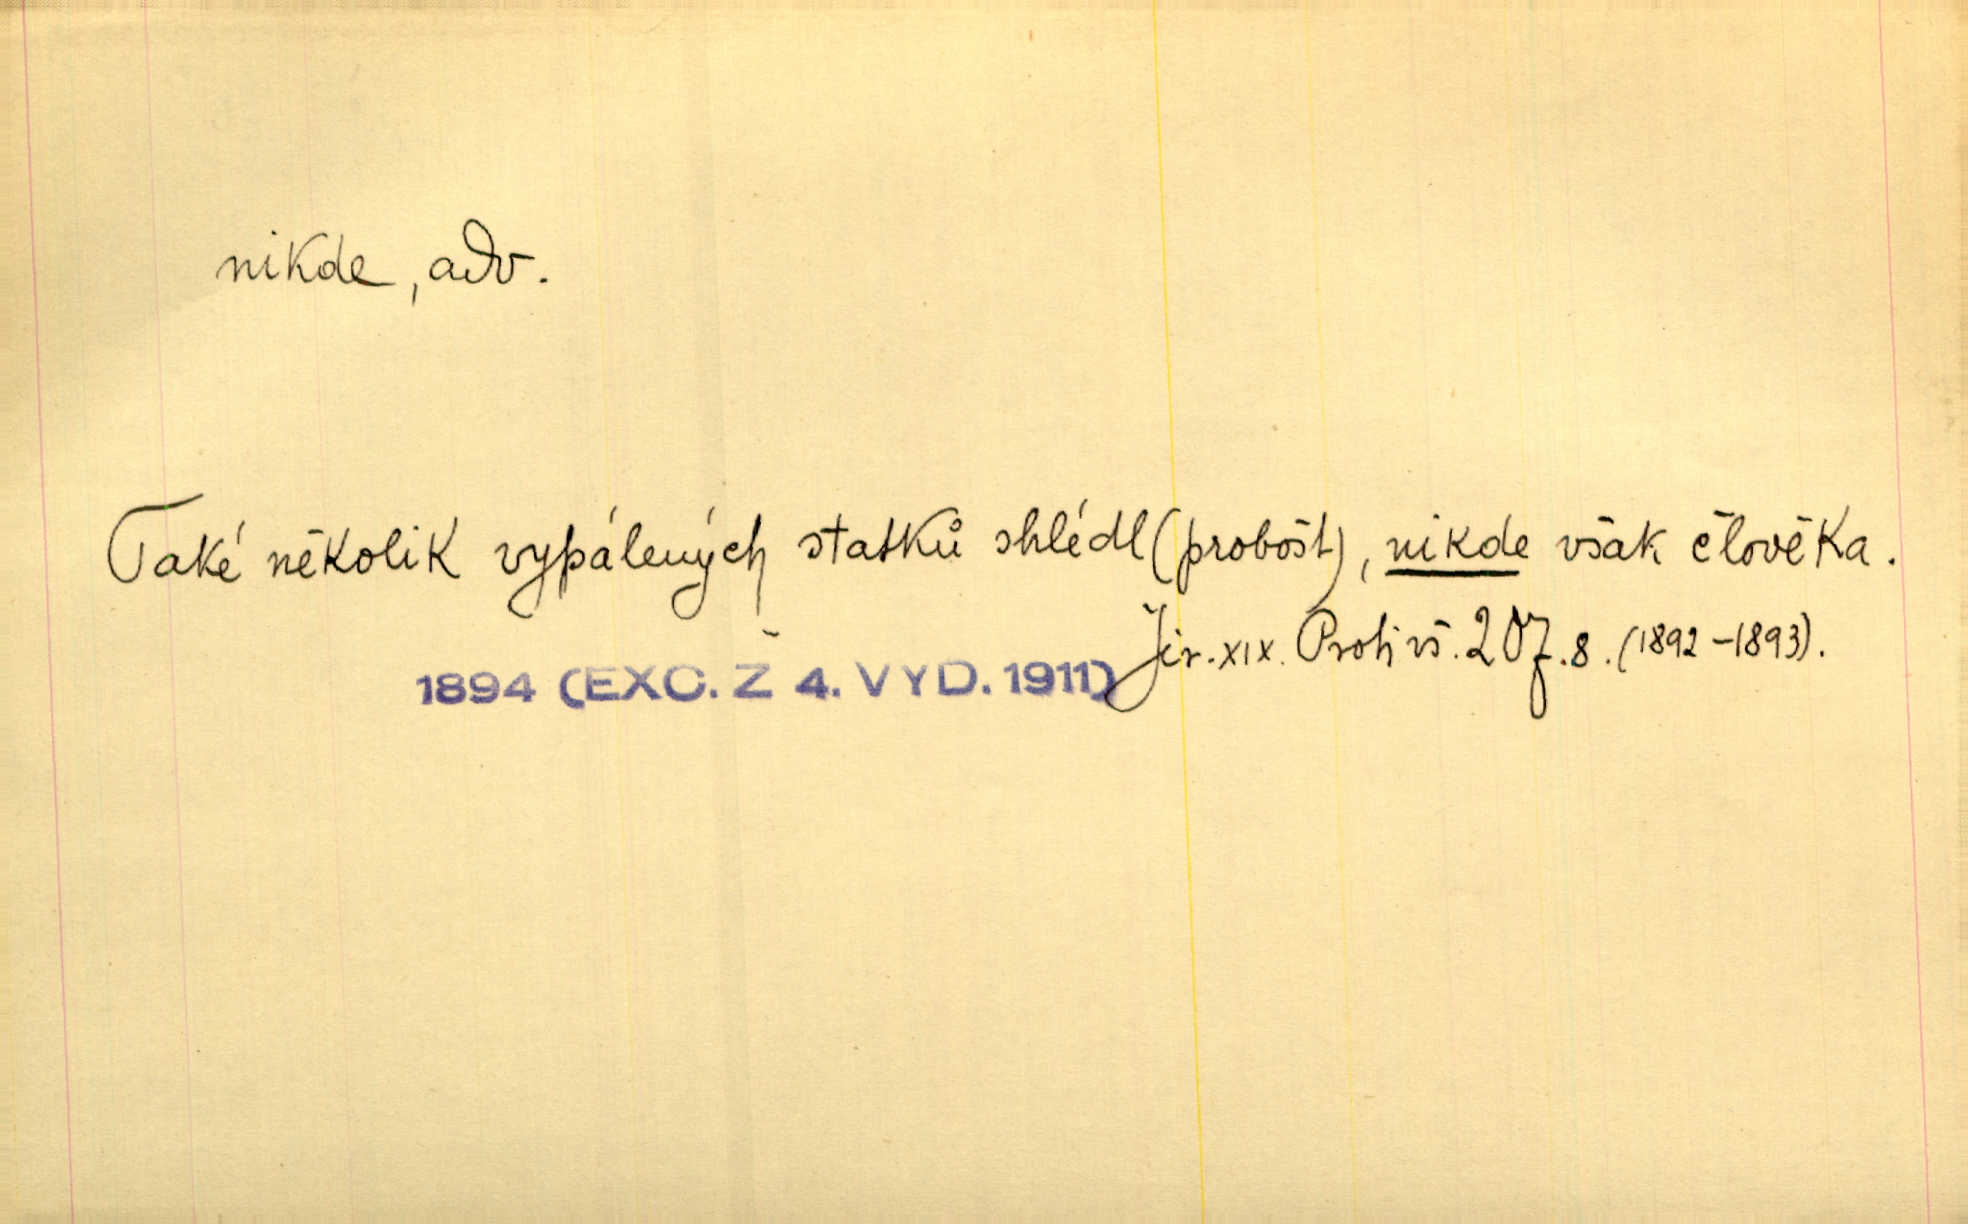 nikde, adv.
Také několik vypálených statků shlédl (probošt), nikde však člověka.
Jir. XIX. Proti vš. 207.8. (1892–1893).
1894 (EXC. Z 4. VYD. 1911)